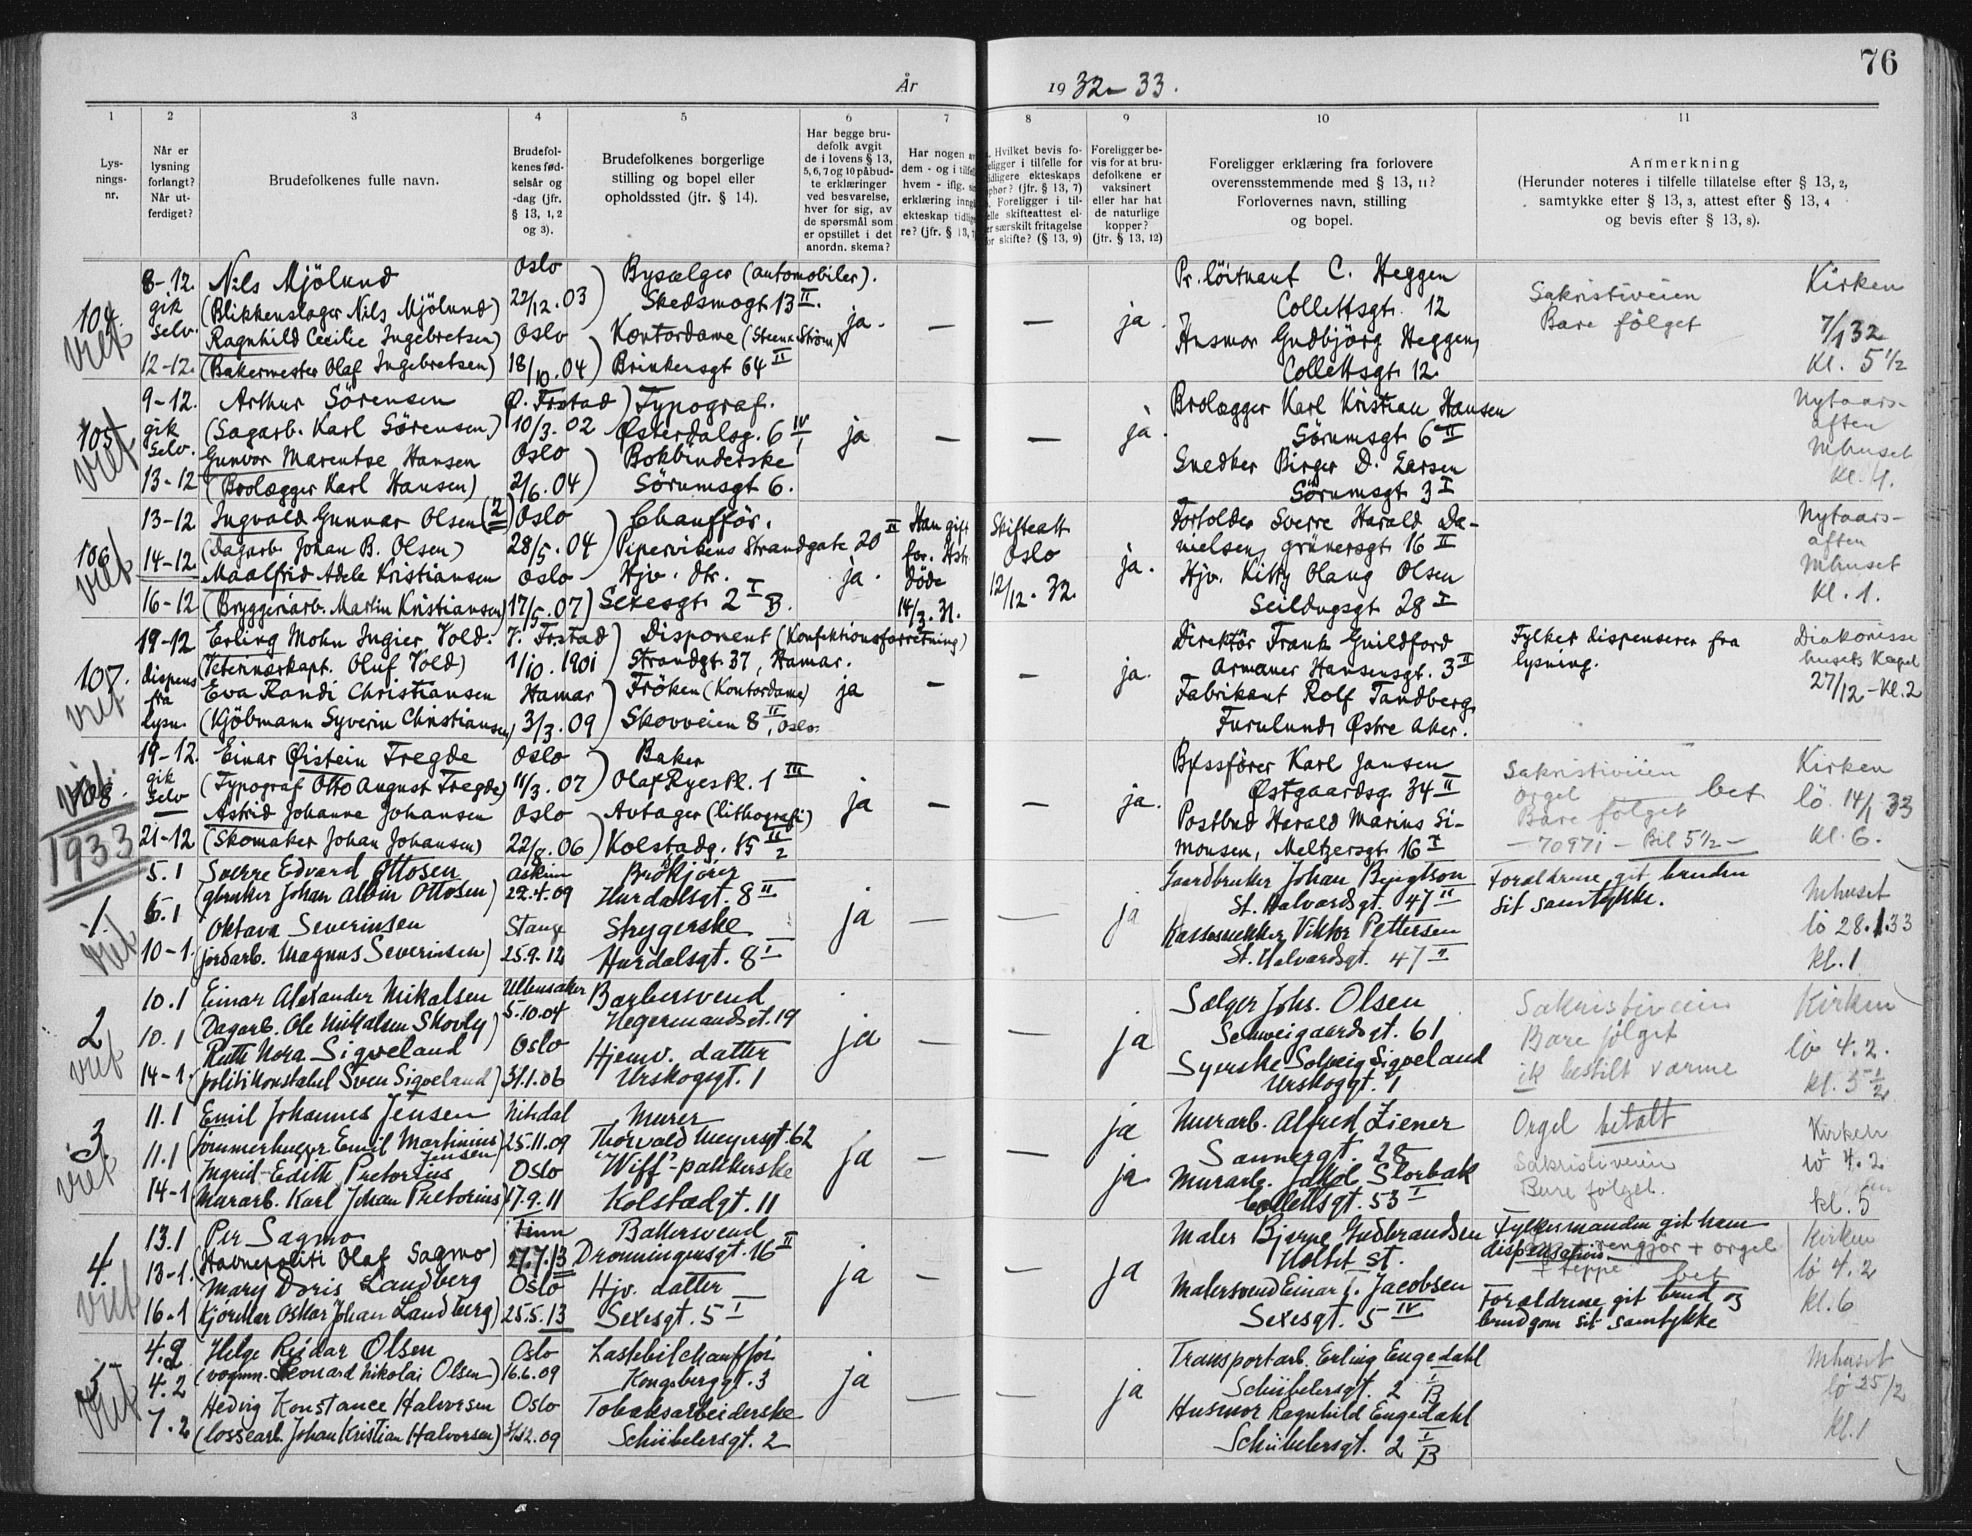 76
År
19 32-33.
1
2
3
4
5
6
7
8
9
10
11
Lys-
nings-
nr.
Når er
lysning
forlangt?
Når ut-
ferdiget?
Brudefolkenes fulle navn.
Brudefol-
kenes fød-
selsår og
-dag (jfr.
§ 13, 1, 2
og 3).
Brudefolkenes borgerlige
stilling og bopel eller
opholdssted (jfr. § 14).
Har begge bru-
defolk avgit
de i lovens § 13,
5, 6, 7 og 10 påbud-
te erklæringer
ved besvarelse,
hver for sig, av
de spørsmål som
er opstillet i det
anordn. skema?
Har nogen
dem - og i
hvem - iflg.
erklæring inng
ekteskap tidlig
re? (jfr. § 13,
Hvilket bevis fo-
religger i tilfelle for
tidligere ekteskaps
ophør? (jfr. § 13, 7)
Foreligger i til-
felle skifteattest el-
ler særskilt fritagelse
for skifte? (§ 13, 9)
Foreligger be-
vis for at bru-
defolkene er
vaksinert
eller har hat
de naturlige
kopper?
(jfr. § 13, 12)
Foreligger erklæring fra forlovere
overensstemmende med § 13, 11?
Forlovernes navn, stilling
og bopel.
Anmerkning
(Herunder noteres i tilfelle tillatelse efter § 13, 2,
samtykke efter § 13, 3, attest efter § 13, 4
og bevis efter § 13, 8).
104
viet
8-12.
gik
selv.
12-12.
Nils Mjölund
(Blikkenslager Nils Mjölund)
Ragnhild Cecilie Ingebretsen
(Bakermester Olaf Ingebretsen)
Oslo
22/12.03
Oslo
18/10.04
Bysælger (automobiler).
Skedsmogt. 13 II.
Kontordame (Steen & Ström)
Brinkensgt 64 II
ja.
—
—
ja.
Pr. löitnant C. Heggen
Collettsgt. 12
Husmor Gudbjörg Heggen,
Collettsgt. 12.
Sakristiveien
Bare følget
Kirken
7/1 32
Kl. 5 1/2
105
viet
9-12.
gik
selv.
13-12
Arthur Sörensen
(Sagarb. Karl Sörensen)
Gunvor Marentse Hansen
(Brolægger Karl Hansen)
Ø. Frstad
10/3.02
Oslo
2/6.04
Typograf.
Østerdalsg. 6 IV
Bokbinderske
Sörumsgt 6.
ja
—
—
ja.
Brolægger Karl Kristian Hansen
Sörumsgt 6 II
Snedker Birger D. Larsen
Sörumsgt 3 I
Nytaars-
aften
Mhuset
Kl. 4.
106
viet
13-12
14-12
16-12
Ingvald Gunnar Olsen (2)
(Dagarb. Johan B. Olsen)
Maalfrid Adele Kristiansen
(Bryggeriarb. Martin Kristiansen)
Oslo
28/5.04
Oslo
17/5.07
Chaufför.
Pipervikens Strandgate 20 II
Hjv. dtr.
Sexesgt. 2 I B.
ja.
Han gift
for. Hstr.
döde
14/3.31.
Skifteatt
Oslo
12/12.32
ja.
Forfolder Sverre Harald Da-
nielsen, Grünersgt 16 II
Hjv. Kitty Olaug Olsen
Seildugsgt 28 I
Nytaars-
aften
Mhuset
Kl. 1.
107.
viet
19-12
dispens
fra
lysn.
Erling Mohn Ingier Vold.
(Veterinærkapt. Oluf Vold)
Eva Randi Christiansen
(Kjöbmann Syverin Christiansen)
F. Frstad
1/10.1901
Hamar
3/3.09
Disponent (Konfektionsforretning)
Strandgt. 37, Hamar.
Fröken (Kontordame)
Skovveien 8 II, Oslo.
ja
—
—
ja.
Direktör Frank Guildford
Armauer Hansensgt. 3 II
Fabrikant Rolf Tandberg,
Furulund, Østre Aker.
Fylket dispenserer fra
lysning.
Diakonisse
husets Kapel
27/12 - Kl. 2
108.
viet
19-12.
gik
selv
21-12
Einar Øistein Fregde
(Typograf Otto August Fregde)
Astrid Johanne Johansen
(Skomaker Johan Johansen)
Oslo
11/3.07
Oslo
22/8.06
Baker
Olaf Ryes Pl. 1 III
Avtager (lithografi)
Kolstadg. 15 II 2
ja
—
—
ja.
Byssförer Karl Jansen
Østgaardsg 34 II
Postbud Harald Marius Si-
monsen, Meltzersgt 16 I
Sakristiveien
Orgel — bet
Bare følget
— 70971 — Bil 5 1/2 —
Kirken
lö. 14/1 33
Kl. 6.
1933
1.
viet
5.1
6.1
10-1.
Sverre Edvard Ottosen
(gbruker Johan Albin Ottosen)
Oktava Severinsen
(jordarb. Magnus Severinsen)
Askim
22.4.09
Stange
25.9.12
Budkjörer
Hurdalsgt. 8 II
Strygerske
Hurdalsgt. 8 I
ja
—
—
ja
Gaardbruker Johan Bengtson
St. Halvardsgt. 47 II
Kassesnekker Viktor Pettersen
St. Halvardsgt. 47 II
Foraldrene git bruden
sit samtykke.
Mhuset
lö 28.1.33
kl. 1
2
viet
10.1
10.1
14-1.
Einar Alexander Mikalsen
(Dagarb. Ole Mikalsen Skovly)
Ruth Nora Sigveland
(politikonstabel Sven Sigveland)
Ullensaker
5.10.04
Oslo
31.1.06
Barbersvend
Hegermandsgt. 19
Hjemv. datter
Urskoggt. 1
ja
—
—
ja
Sælger Johs. Olsen
Schweigaardsgt. 61
Syerske Solveig Sigveland
Urskoggt. 1
Sakristiveien
Bare følget
ik bestilt varme
Kirken
lö 4.2.
kl. 5 1/2
3.
viet
11.1
11.1
14-1
Emil Johannes Jensen
(Tömmerhugger Emil Martinius
Jensen)
Ingrid Edith Pretorius
(Murarb. Karl Johan Pretorius)
Nitedal
25.11.09
Oslo
17.9.11
Murer
Thorvald Meyersgt. 62
"Wiff"-pakkerske
Kolstadgt. 11
ja
—
—
ja
ja
Murarb. Alfred Ziener
Sannergt. 28
Murarb. Jakob Storbak
Collettsgt. 53 I
Orgel betalt
Sakristiveien
Bare følget.
Kirken
lö 4.2
kl. 5
4.
viet
13.1
13-1.
16-1
Per Sagmo
(Havnepoliti Olaf Sagmo)
Mary Doris Landberg
(Kjörekar Oskar Johan Landberg)
Tinn
27.7.13
Oslo
25.5.13
Bakersvend
Dronningensgt. 16 II
Hjv. datter
Sexesgt. 5 I
ja
—
—
ja
Maler Bjarne Gudbrandsen
Holtet st.
Malersvend Einar L. Jacobsen
Sexesgt. 5 IV
Fylkesmanden git ham
dispensation
rengjør + orgel
+ teppe bet
Foraldrene git brud og
brudgom sit samtykke
Kirken
lö 4.2
kl. 6
5
viet
4.2
4.2
7.2
Helge Reidar Olsen
(vognm. Leonard Nikolai Olsen)
Hedvig Konstance Halvorsen
(lossearb. Johan Kristian Halvorsen)
Oslo
16.6.09
Oslo
.12.09
Lastebilchaufför
Kongsberggt. 3
Tobaksarbeiderske
Schübelersgt. 2
ja
—
—
ja
Transportarb. Erling Engedahl
Schübelersgt. 2 I B
Husmor Ragnhild Engedahl
Schübelersgt. 2 I B
Mhuset
lö 25/2
kl. 1